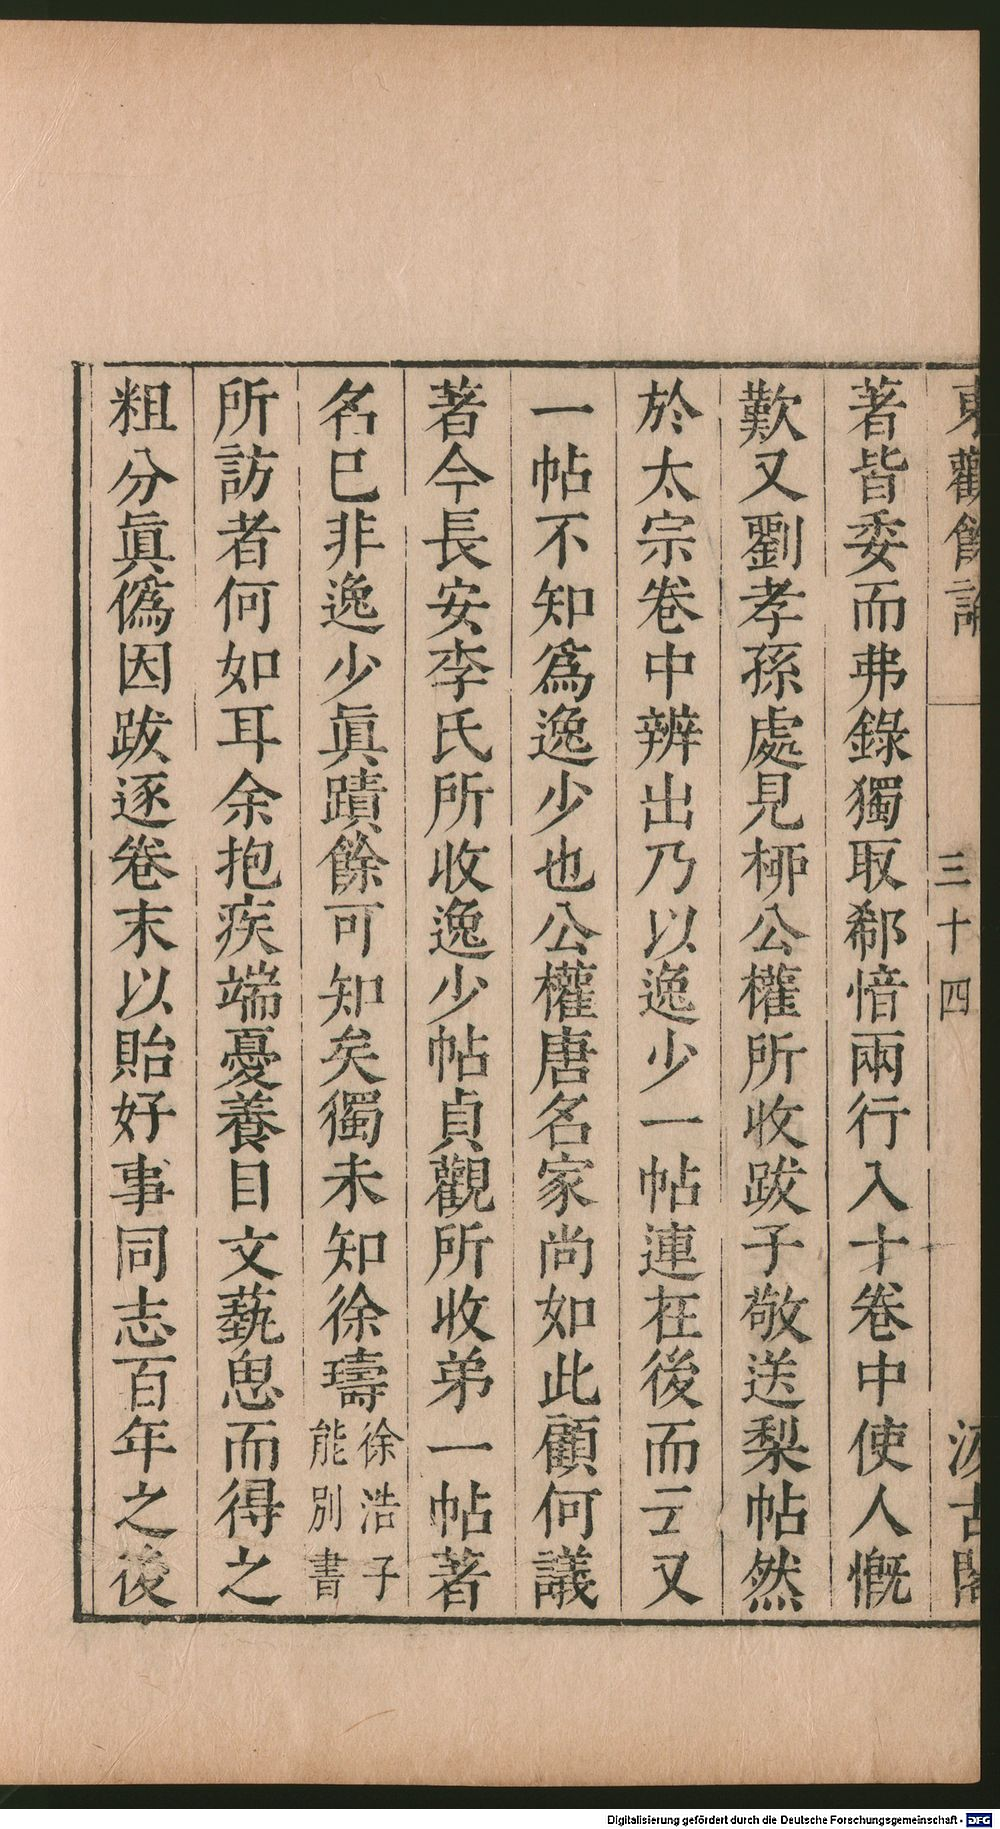 東觀餘論 三十四 汲古閣
著皆委而弗錄獨取郗愔兩行入十卷中使人慨
歎又劉孝孫處見桺公權所收跋子敬送梨帖然
於太宗卷中辨出乃以逸少一帖連在後而云又
一帖不知爲逸少也公權唐名家尚如此顧何議
著今長安李氏所收逸少帖貞觀所收弟一帖著
名巳非逸少眞蹟餘可知矣獨未知徐璹徐浩子能別書
所訪者何如耳余抱疾端憂養目文藝思而得之
粗分眞僞因跋逐卷末以貽好事同志百年之後
Digitalisierung gefördert durch die Deutsche Forschungsgemeinschaft - DFG